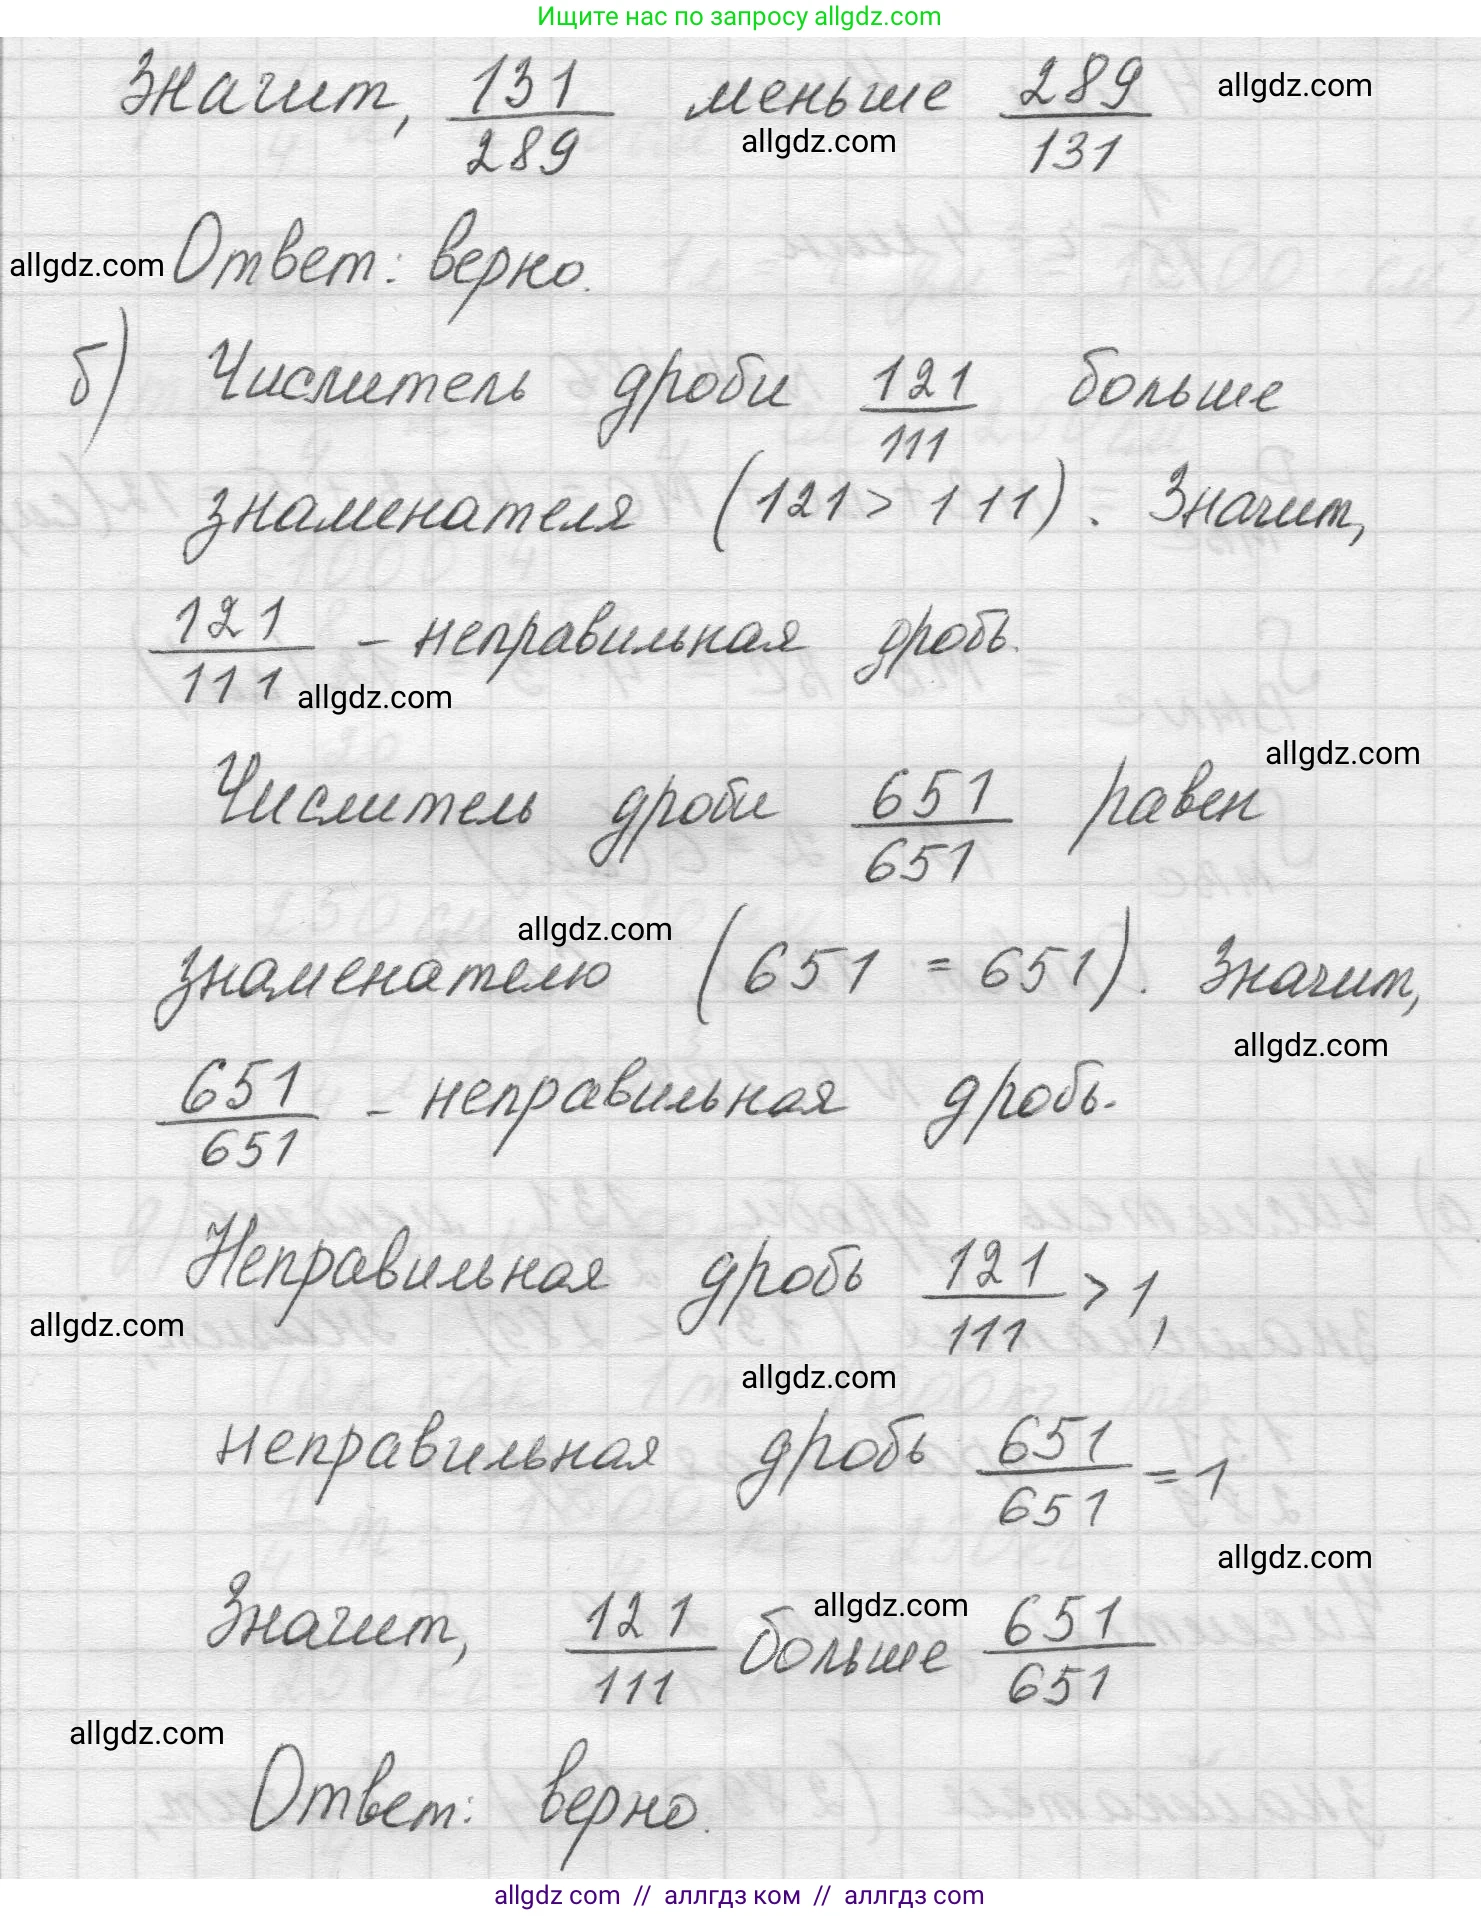 Ищите нас по запросу allgdz.com
Значит, 131/289 меньше 289/131 allgdz.com
allgdz.com
allgdz.com Ответ: верно.
б) Числитель дроби 121/111 больше
знаменателя (121 > 111). Значит,
121/111 - неправильная дробь.
allgdz.com
allgdz.com
Числитель дроби 651/651 равен
allgdz.com
знаменателю (651 = 651). Значит,
allgdz.com
651/651 - неправильная дробь.
Неправильная дробь 121/111 > 1,
allgdz.com
allgdz.com
неправильная дробь 651/651 = 1
allgdz.com
allgdz.com
Значит, 121/111 больше 651/651
allgdz.com
Ответ: верно.
allgdz com // аллгдз ком // аллгдз com